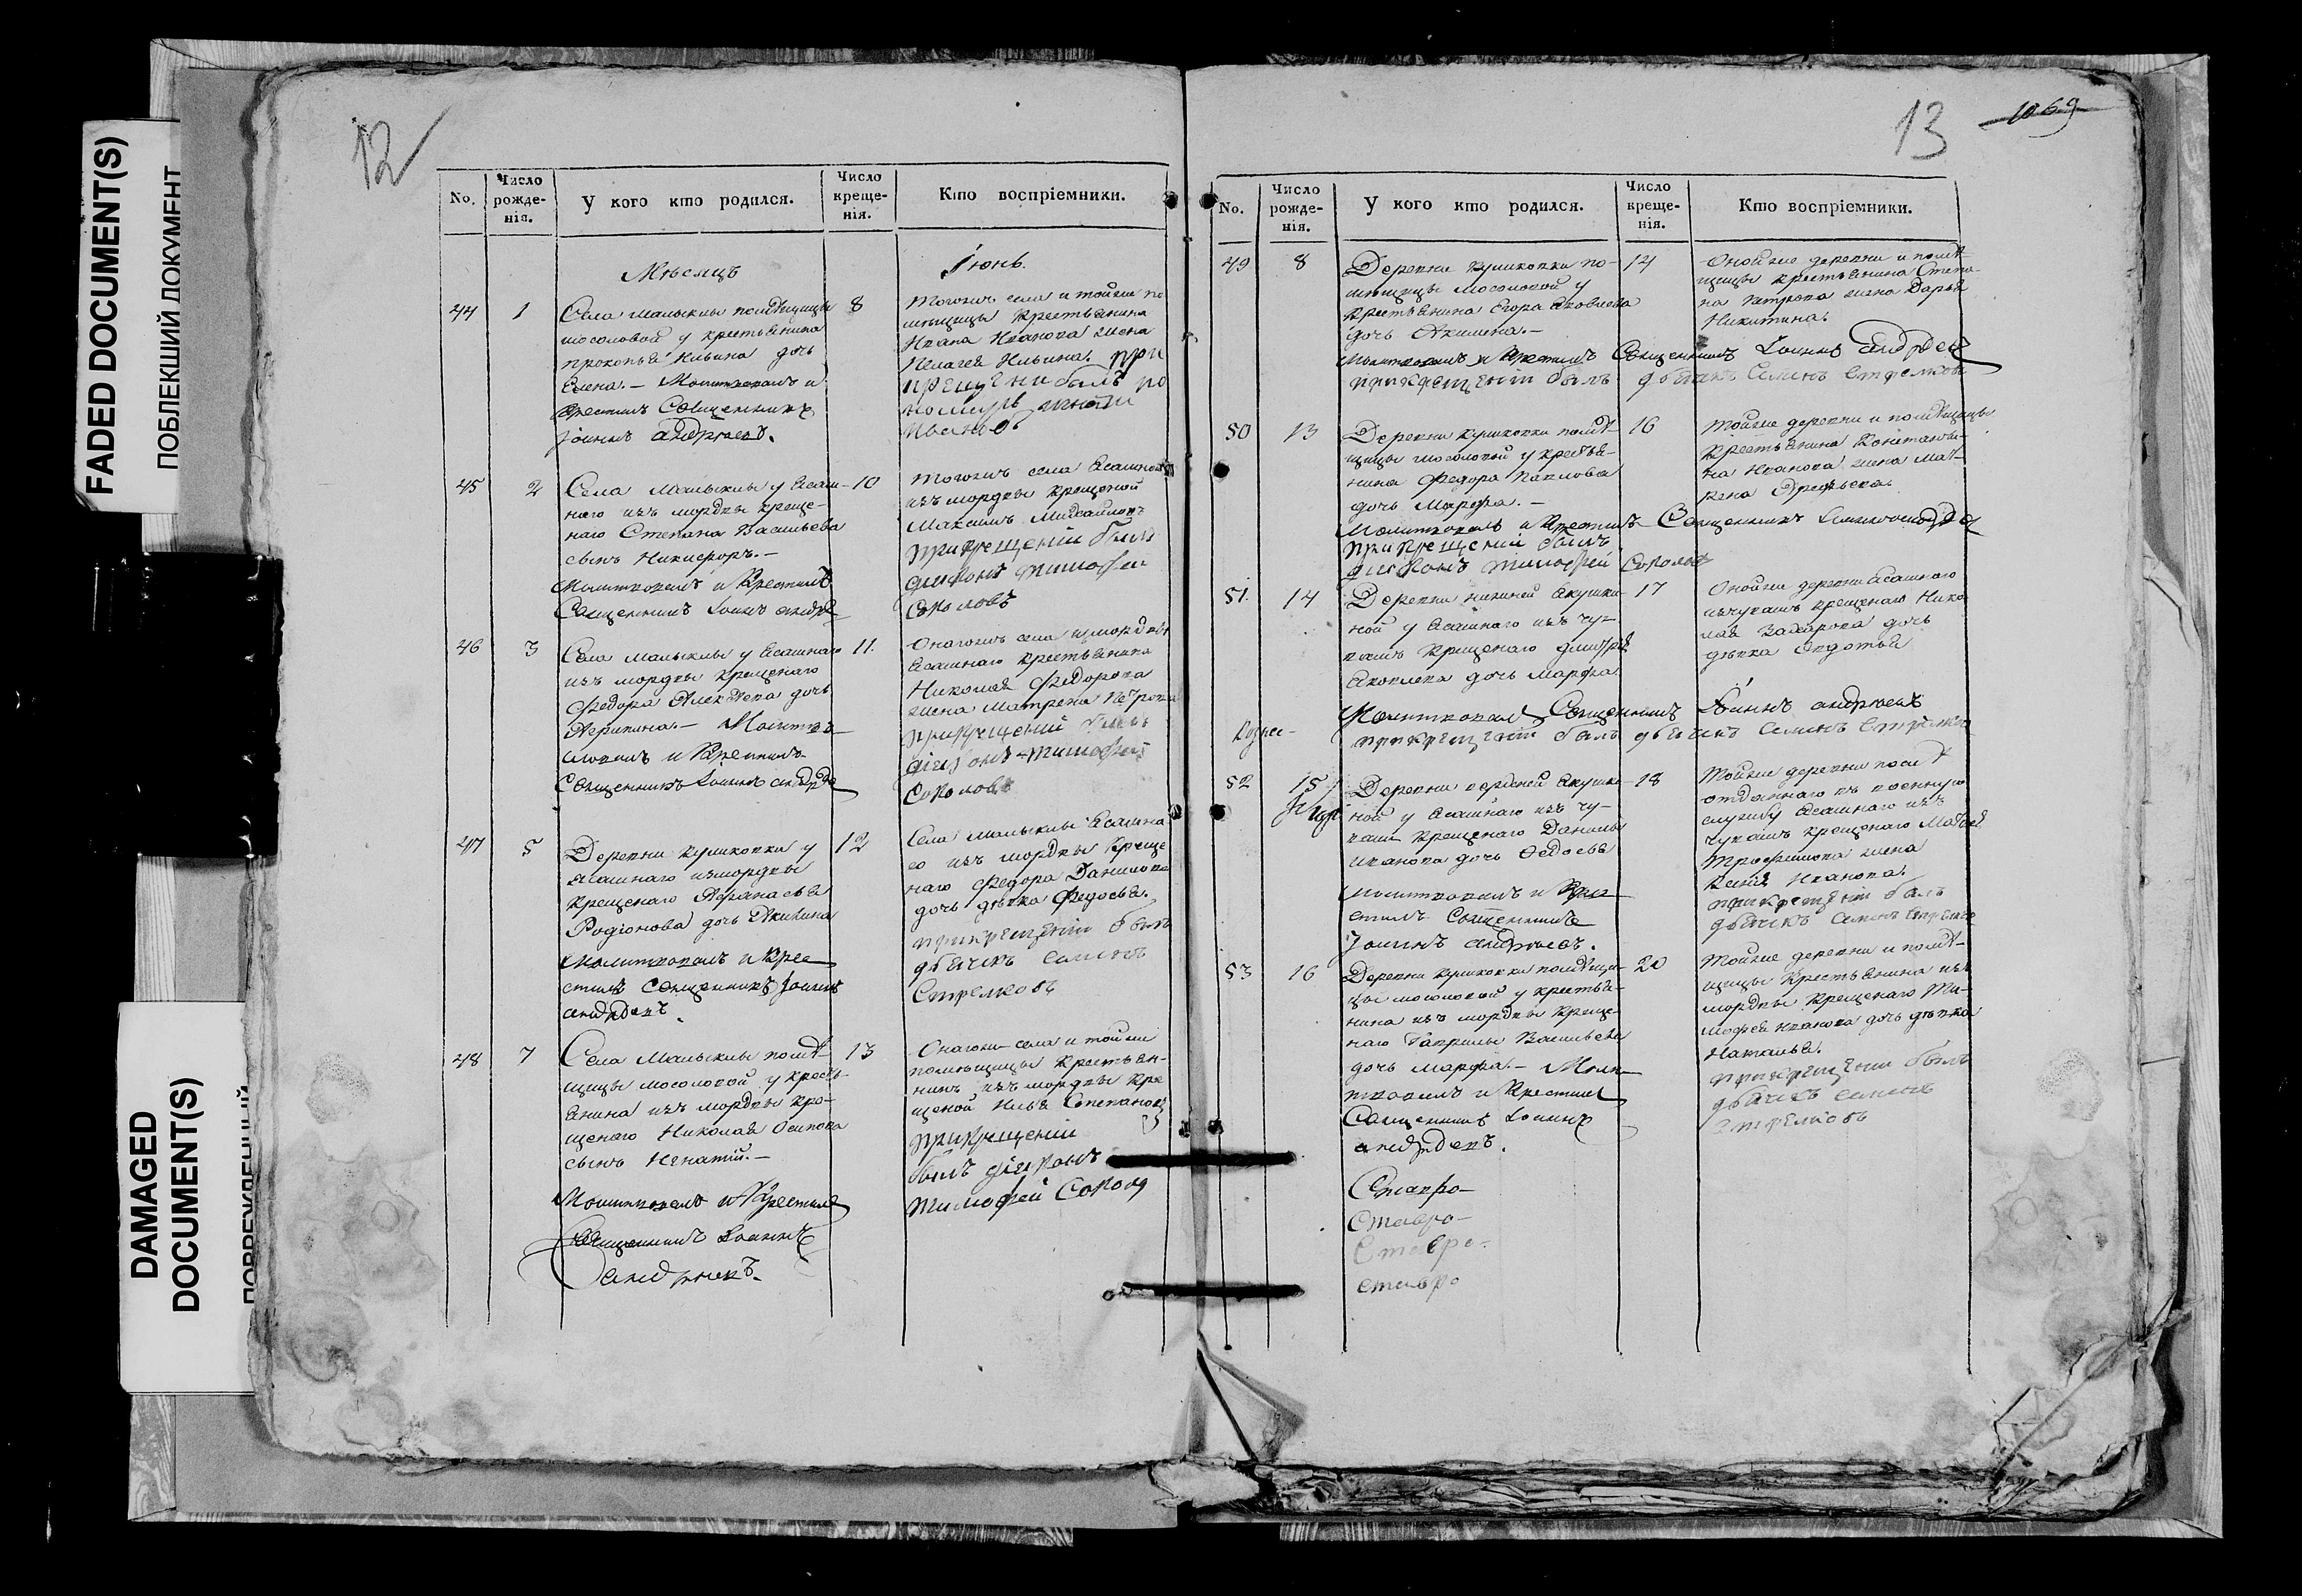 FADED DOCUMENT(S)
ПОБЛЕКШИЙ ДОКУМЕНТ
DAMAGED
DOCUMENT(S)
12
No.
Число
рожде-
нія.
У кого кто родился.
Число
креще-
нія.
Кто воспріемники.
Мѣсяцъ
Іюнь.
44
1
Села Малыклы помѣщицы
мосоловой у крестьянина
прокопья Ильина дочь
Елена. — Молитвовалъ и
крестилъ Священникъ
Іоаннъ андреевъ.
8
тогожъ села и тойже по
мѣщицы крестьянина
Ивана Иванова жена
Пелагея Ильина. при
45
2
Села Малыклы у Ясаш-
наго изъ мордвы креще-
наго Степана Васильева
сынъ Никифоръ. —
Молитвовалъ и Крестилъ
Священникъ Іоаннъ андре
10
тогожъ села Ясашной
изъ мордвы крещеной
Максимъ Михайловъ
при крещеніи былъ
діяконъ тимофеи
Соколовъ
46
3
Села малыклы у Ясашнаго
изъ мордвы крещенаго
Федора Алексѣева дочь
Молит
вовалъ и Крестилъ
Священникъ Іоаннъ андре
11.
Онагожъ села измордвы
Ясашнаго крестьянина
Николая Федорова
жена Матрена Петрова
при крещеніи былъ
діяконъ тимофей
Соколовъ
47
5
Деревни куликовки у
ясашнаго измордвы
крещенаго Афанасья
Родіонова дочь Акилина
Молитвовалъ и Крес
стилъ Священникъ Іоаннъ
андреевъ.
12
Села малыклы Ясашна
го изъ мордвы креще
наго Федора Данилова
дочь дѣвка Федосья.
прикрещеніи былъ
дьячекъ Семенъ
Стрелковъ
48
7
Села Малыклы помѣ-
щицы мосоловой у кресть-
янина изъ мордвы кре-
щенаго Николая Осипова
сынъ Игнатій. —
Молитвовалъ и Крестилъ
Священникъ Іоаннъ
андреевъ.
13
Онагожъ села и тойже
помѣщицы крестьян-
нинъ изъ мордвы кре
щеной Илья Степановъ
при крещеніи
былъ діяконъ
тимофей Соколов
13
1069
No.
Число
рожде-
нія.
У кого кто родился.
Число
креще-
нія.
Кто воспріемники.
49
8
Деревни куликовки по-
мѣщицы Мосоловой у
крестьянина Егора Яковлева
дочь Акилина. —
Молитвовалъ и Крестилъ Священникъ Іоаннъ андреев
прикрещеніи былъ дьячекъ Семенъ Стрелковъ
14
Онойже деревни и помѣ
щицы крестьянина Степа-
на петрова жена Дарья
Никитина.
50
13
Деревни куликовки помѣ-
щицы мосоловой у крестья-
нина Федора Павлова
дочь Марфа. —
Молитвовалъ и Крестилъ Священникъ
при крещеніи былъ
діяконъ тимофей Соколовъ
16
тойже деревни и помѣщицы
крестьянина Константи-
на Иванова жена Мат-
рена
51.
14
Деревни нижней Якушки-
ной у Ясашнаго изъ чу-
вашъ крещенаго дмитрія
Яковлева дочь марфа.
Молитвовалъ Священникъ Іоаннъ андреевъ
прикрещеніи былъ дьячекъ Семенъ Стрелков
17
Онойже деревни Ясашнаго
изчувашъ крещенаго Нико
лая Захарова дочь
дѣвка Авдотья
52
15
Деревни верхней Якушки-
ной у Ясашнаго изъ чу-
вашъ крещенаго Данилы
иванова дочь Федосья
Молитвовалъ и Кре
стилъ Священникъ
Іоаннъ андреевъ.
18
тойже деревни
отданнаго въ военную
службу Ясашнаго изъ
чувашъ крещенаго Матвея
трофимова жена
Ксенія Иванова.
прикрещеніи былъ
дьячекъ Семенъ Стрелков
53
16
Деревни куликовки помѣщи-
цы мосоловой у крестья-
нина изъ мордвы креще-
наго Гаврилы Васильева
дочь марфа. — Моли
твовалъ и Крестилъ
Священникъ Іоаннъ
андреевъ.
20
тойже деревни и помѣ-
щицы крестьянина изъ
мордвы крещенаго Ти-
мофея иванова дочь дѣвка
Наталья.
прикрещеніи былъ
дьячекъ Семенъ
Стрелковъ
Ставро-
Ставро-
Ставро-
ставро